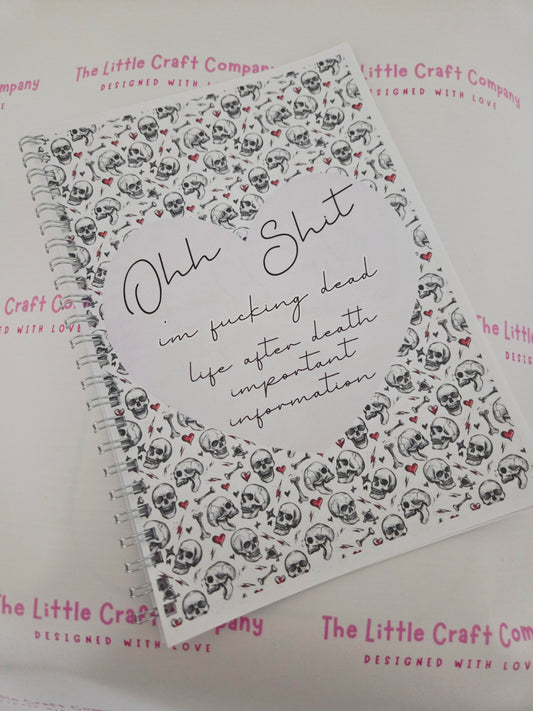 The Little Craft Company
DESIGNED WITH LOVE
Little Craft Company
DESIGNED WITH LOVE
Company
WITH LOVE
Ohh Shit
im fucking dead
life after death
important
information
The Little Craft Co
DESIGNED WITH LOVE
The Little Craft
DESIGNED
The Little Craft Company
DESIGNED WITH LOVE
The Little Craft Company
DESIGNED WITH LOVE